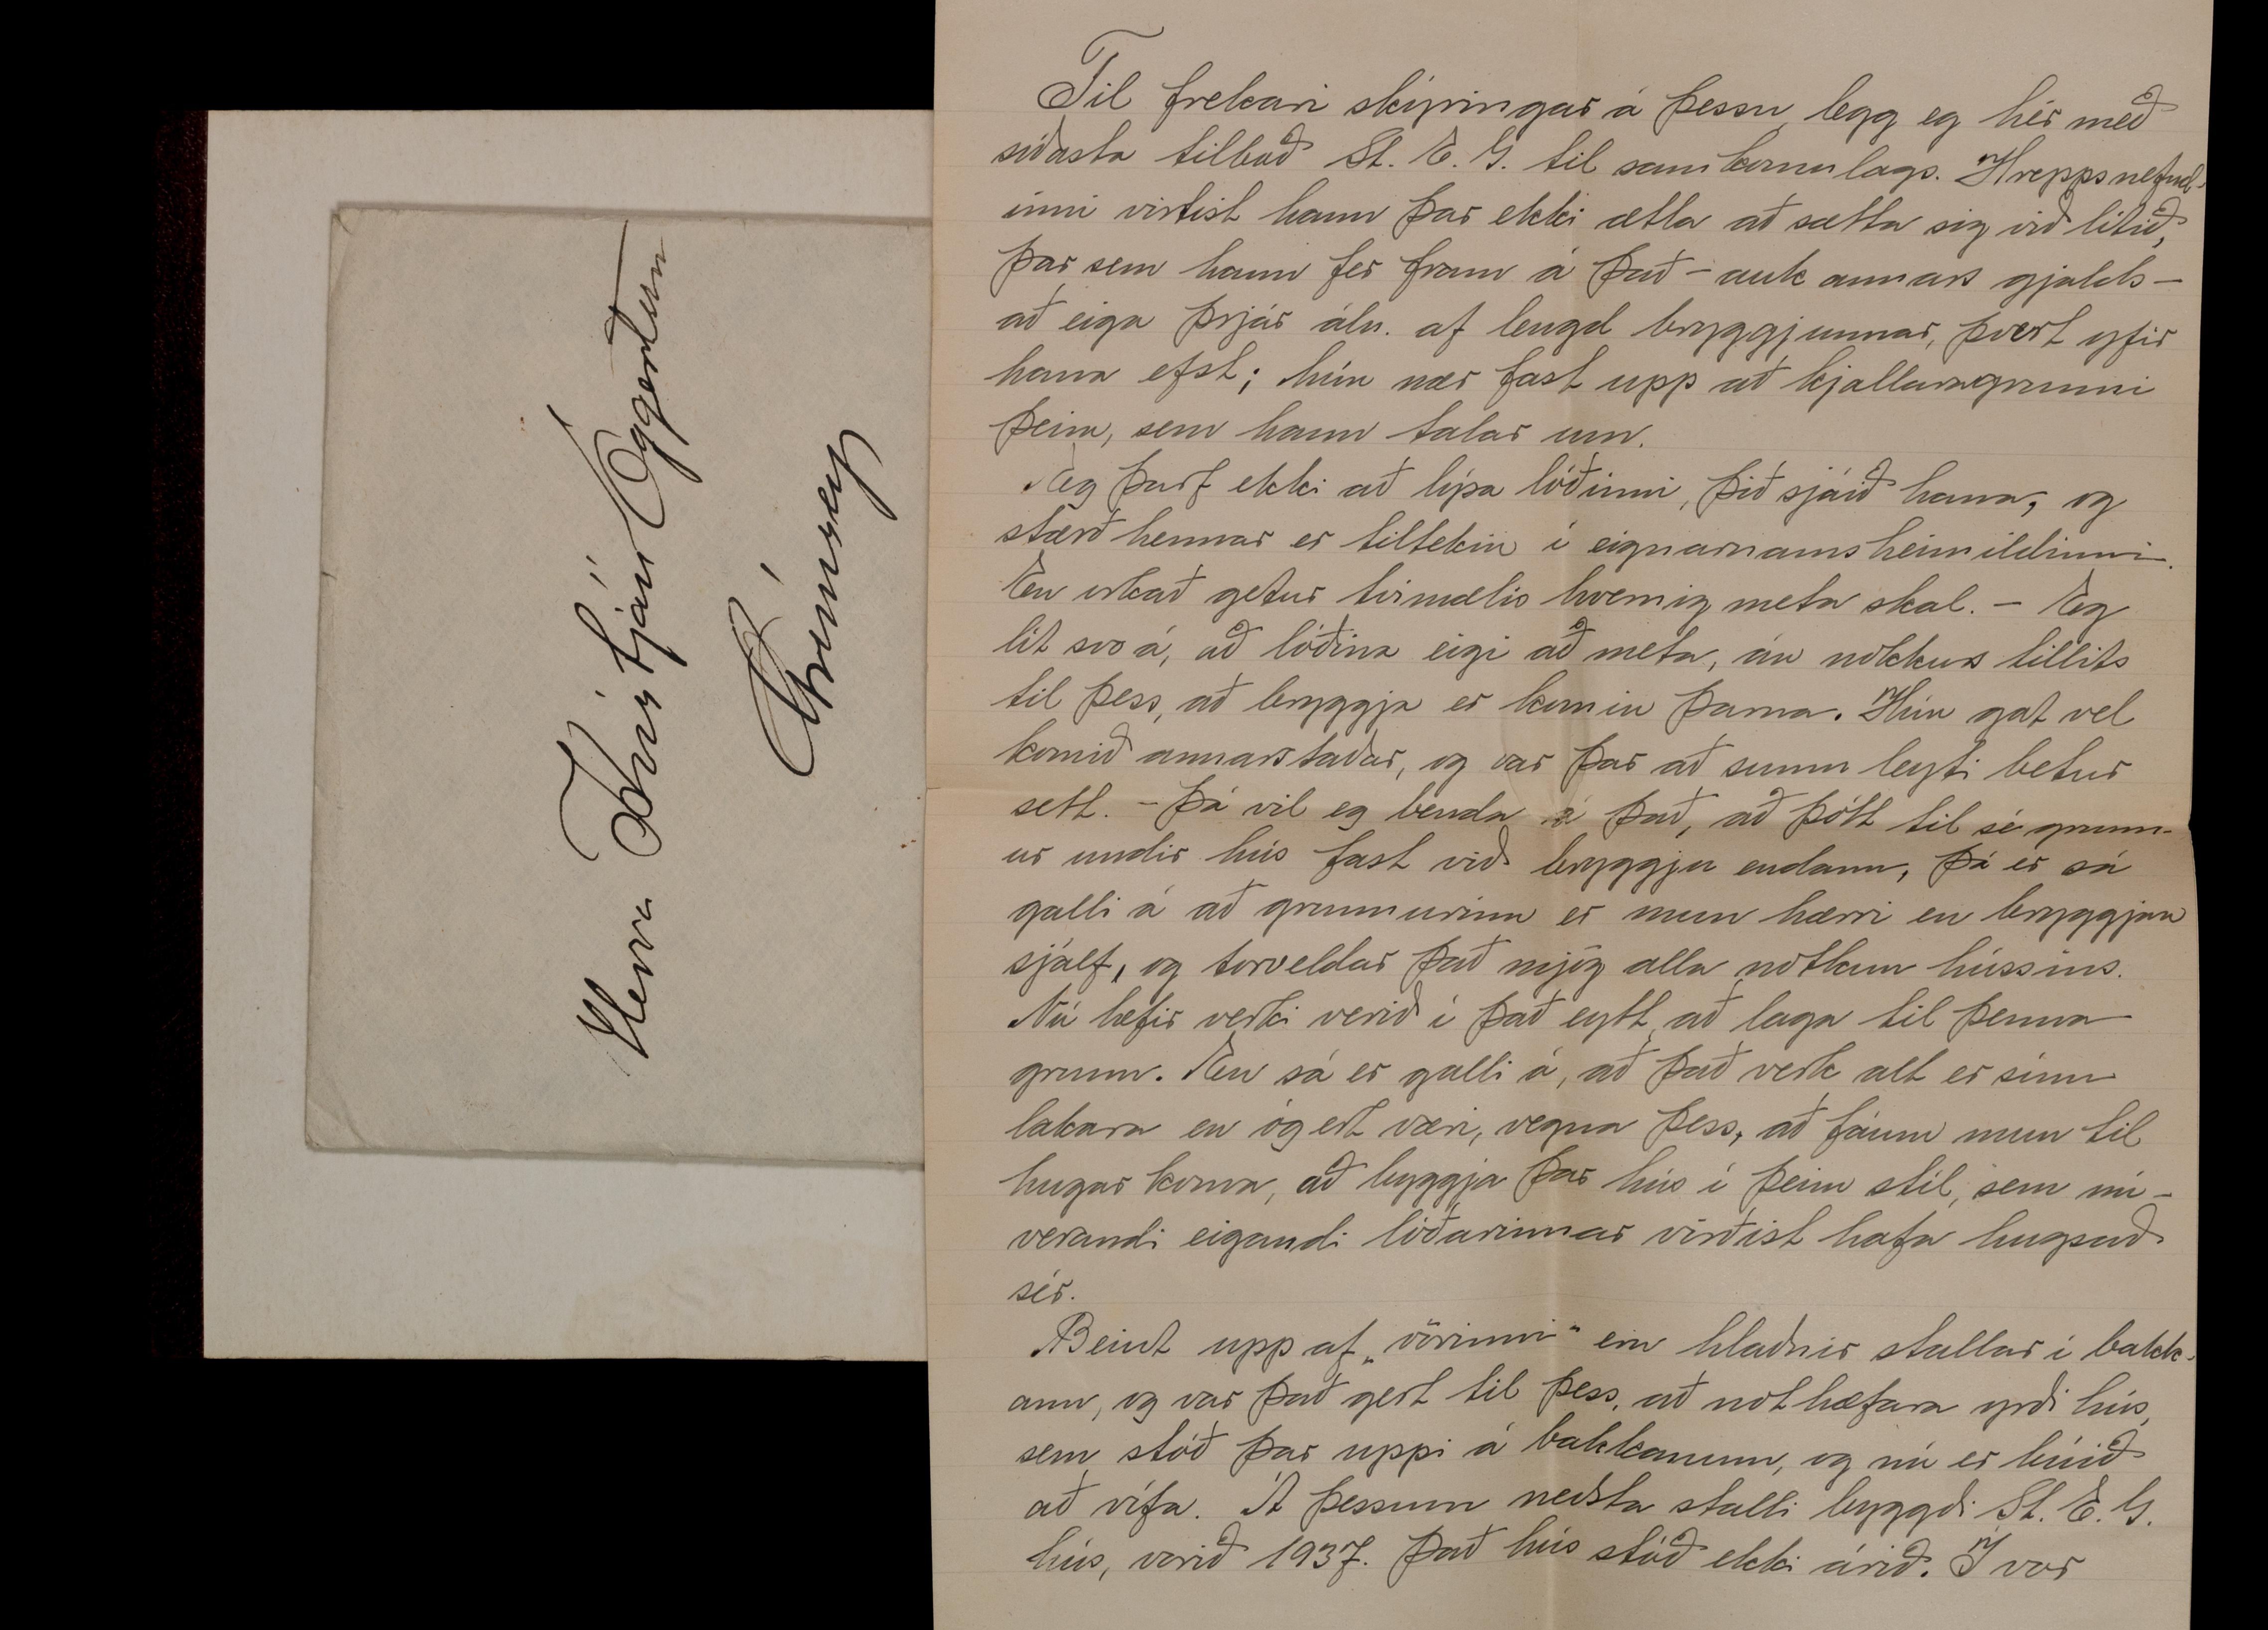 Herra Kristján Eggertsson
Grímsey
Til frekari skýringar á þessu, legg eg hér með
síðasta tilboð St. E. G. til samkomulags. Hreppsnefnd-
inni virtist hann þar ekki ætla að sætta sig við lítið,
þar sem hann fer fram á það - auk annars gjalds -
að eiga þrjár áln. af lengd bryggjunnar, þvert yfir
hana efst; hún nær fast upp að kjallaragrunni
þeim, sem hann talar um.
Eg þarf ekki að lýsa lóðinni, þið sjáið hana, og
stærð hennar er tiltekin í eignarnámsheimildinni.
En orkað getur tvímælis hvernig meta skal. - Eg
lít svo á, að lóðina eigi að meta, án nokkurs tillits
til þess, að bryggja er komin þarna. Hún gat vel
komið annarstaðar, og var þar að sumu leyti betur
sett. - Þá vil eg benda á það, að þótt til sé grunn-
ur undir hús fast við bryggju endann, þá er sá
galli á að grunnurinn er mun hærri en bryggjan
sjálf, og torveldar það mjög alla notkun hússins.
Nú hefir verki verið í það eytt, að laga til þenna
grunn. En sá er galli á, að það verk alt er sínu
lakara en ógert væri, vegna þess, að fáum mun til
hugar koma, að byggja þar hús í þeim stíl, sem nú-
verandi eigandi lóðarinnar virðist hafa hugsað
sér.
Beint upp af „vörinni" eru hlaðnir stallar í bakk-
ann, og var það gert til þess, að nothæfara yrði hús,
sem stóð þar uppi á bakkanum, og nú er búið
að rífa. Á þessum neðsta stalli byggði St. E. G.
hús, vorið 1937. Það hús stóð ekki árið. Í vor